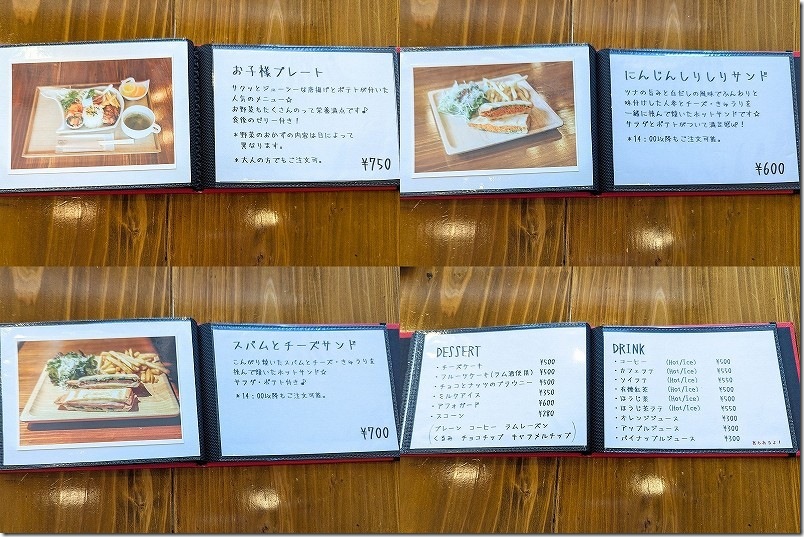 お子様プレート
サクッとジューシーな唐揚げとポテトが付いた
人気のメニュー☆
お野菜もたくさんのって栄養満点です♪
食後のゼリー付き！
*野菜のおかずの内容は日によって
異なります。
*大人の方でもご注文可。
¥750
にんじんしりしりサンド
ツナの旨みと白だしの風味でふんわりと
味付けした人参とチーズ・きゅうりを
一緒に挟んで焼いたホットサンドです☆
サラダとポテトがついて満足感UP！
*14：00以降もご注文可能。
¥600
スパムとチーズサンド
こんがり焼いたスパムとチーズ・きゅうりを
挟んで焼いたホットサンド☆
サラダ・ポテト付き♪
*14：00以降もご注文可能。
¥700
DESSERT
・チーズケーキ ¥500
・フルーツケーキ(ラム酒使用) ¥500
・チョコとナッツのブラウニー ¥500
・ミルクアイス ¥350
・アフォガード ¥600
・スコーン ¥280
(プレーン コーヒー ラムレーズン
くるみ チョコチップ キャラメルチップ)
DRINK
・コーヒー (Hot/Ice) ¥500
・カフェラテ (Hot/Ice) ¥550
・ソイラテ (Hot/Ice) ¥550
・有機紅茶 (Hot/Ice) ¥500
・ほうじ茶 (Hot/Ice) ¥500
・ほうじ茶ラテ (Hot/Ice) ¥550
・オレンジジュース ¥300
・アップルジュース ¥300
・パイナップルジュース ¥300